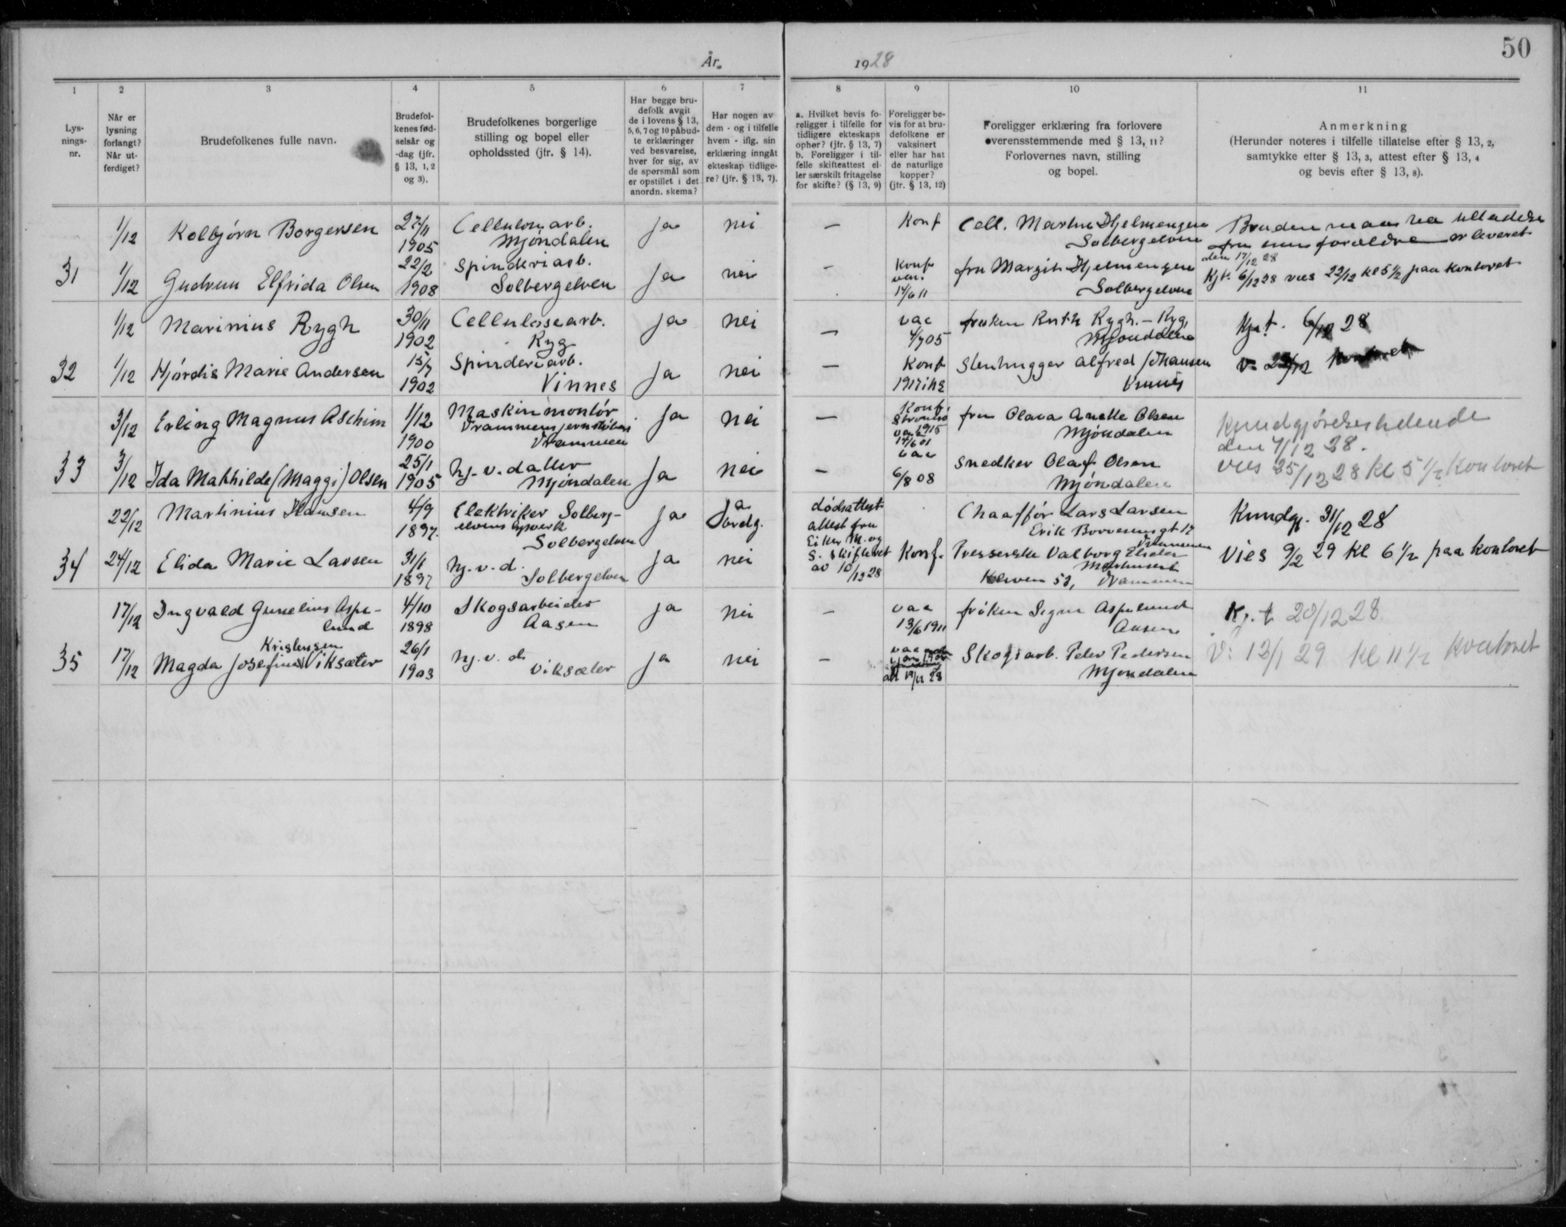 50
År 1928
1
2
3
4
5
6
7
8
9
10
11
Lys-
nings-
nr.
Når er
lysning
forlangt?
Når ut-
ferdiget?
Brudefolkenes fulle navn.
Brudefol-
kenes fød-
selsår og
-dag (jfr.
§ 13, 1, 2
og 3).
Brudefolkenes borgerlige
stilling og bopel eller
opholdssted (jfr. § 14).
Har begge bru-
defolk avgit
de i lovens § 13,
5, 6, 7 og 10 påbud-
te erklæringer
ved besvarelse,
hver for sig, av
de spørsmål som
er opstillet i det
anordn. skema?
Har nogen av
dem - og i tilfelle
hvem - iflg. sin
erklæring inngått
ekteskap tidlige-
re? (jfr. § 13, 7).
a. Hvilket bevis fo-
religger i tilfelle for
tidligere ekteskaps
ophør? (jfr. § 13, 7)
b. Foreligger i til-
felle skifteattest el-
ler særskilt fritagelse
for skifte? (§ 13, 9)
Foreligger be-
vis for at bru-
defolkene er
vaksinert
eller har hat
de naturlige
kopper?
(jfr. § 13, 12)
Foreligger erklæring fra forlovere
overensstemmende med § 13, 11?
Forlovernes navn, stilling
og bopel.
Anmerkning
(Herunder noteres i tilfelle tillatelse efter § 13, 2,
samtykke efter § 13, 3, attest efter § 13, 4
og bevis efter § 13, 8).
1/12 Kolbjørn Borgersen 27/11 1905 Cellulosearb. Mjøndalen ja nei — Konf Cell. Martin Hjelmengen Solbergelven
Bruden maa ha tilladelse
fra sine forældre er leveret
den 17/12 28
31 1/12 Gudrun Elfrida Olsen 22/2 1908 Spinderiarb. Solbergelven ja nei Konf 14/6 11 fru Margit Hjelmengen Solbergelven
Kjt. 6/12 28 vies 22/12 kl 5 1/2 paa kontoret
1/12 Marinius Rygh 30/11 1902 Cellulosearb. Ryg ja nei — vac 4/7 05 frøken Ruth Rygh. - Ryg, Mjøndalen Kjt. 6/12 28
32 1/12 Hjørdis Marie Andersen 15/7 1902 Spinderiarb. Vinnes ja nei Konf Stenhugger Alfred Johansen Vinnes
v. 22/12 kontoret
3/12 Erling Magnus Aschim 1/12 1900 Maskinmontør Drammen ja nei — Konf. 1915 fru Olava Anette Olsen Mjøndalen
Kundgjørelse
den 7/12 28.
33 3/12 Ida Mathilde (Maggi) Olsen 25/1 1905 hj. v. datter Mjøndalen ja nei — vac 6/8 08 Snedker Olaf Olsen Mjøndalen
vies 25/12 28 kl 5 1/2 Kontoret
22/12 Martinius Hansen 4/9 1897. Elektriker Solberg-
elvens Solbergelven ja ja dødsattest
attest fra
Eiker
S. skifteret
av 10/12 28
Chauffør Lars Larsen
Erik Børresensgt 17
Drammen
Kundgj. 31/12 28
34 24/12 Elida Marie Larsen 31/1 1897 hj. v. d. Solbergelven ja nei Konf. Presserske Valborg Drammen
vies 9/2 29 kl 6 1/2 paa kontoret
17/12 Ingvald Gunelius Aspe-
lund 4/10 1898 Skogsarbeider Aasen ja nei — vac 13/6 1911 frøken Signe Aspelund Aasen K. t 20/12 28
35 17/12 Magda Josefine Kristensen Viksæter 26/1 1903 hj. v. d. Viksæter ja nei — vac Skogsarb. Peter Pedersen Mjøndalen
V. 12/1 29 kl 11 1/2 Kontoret